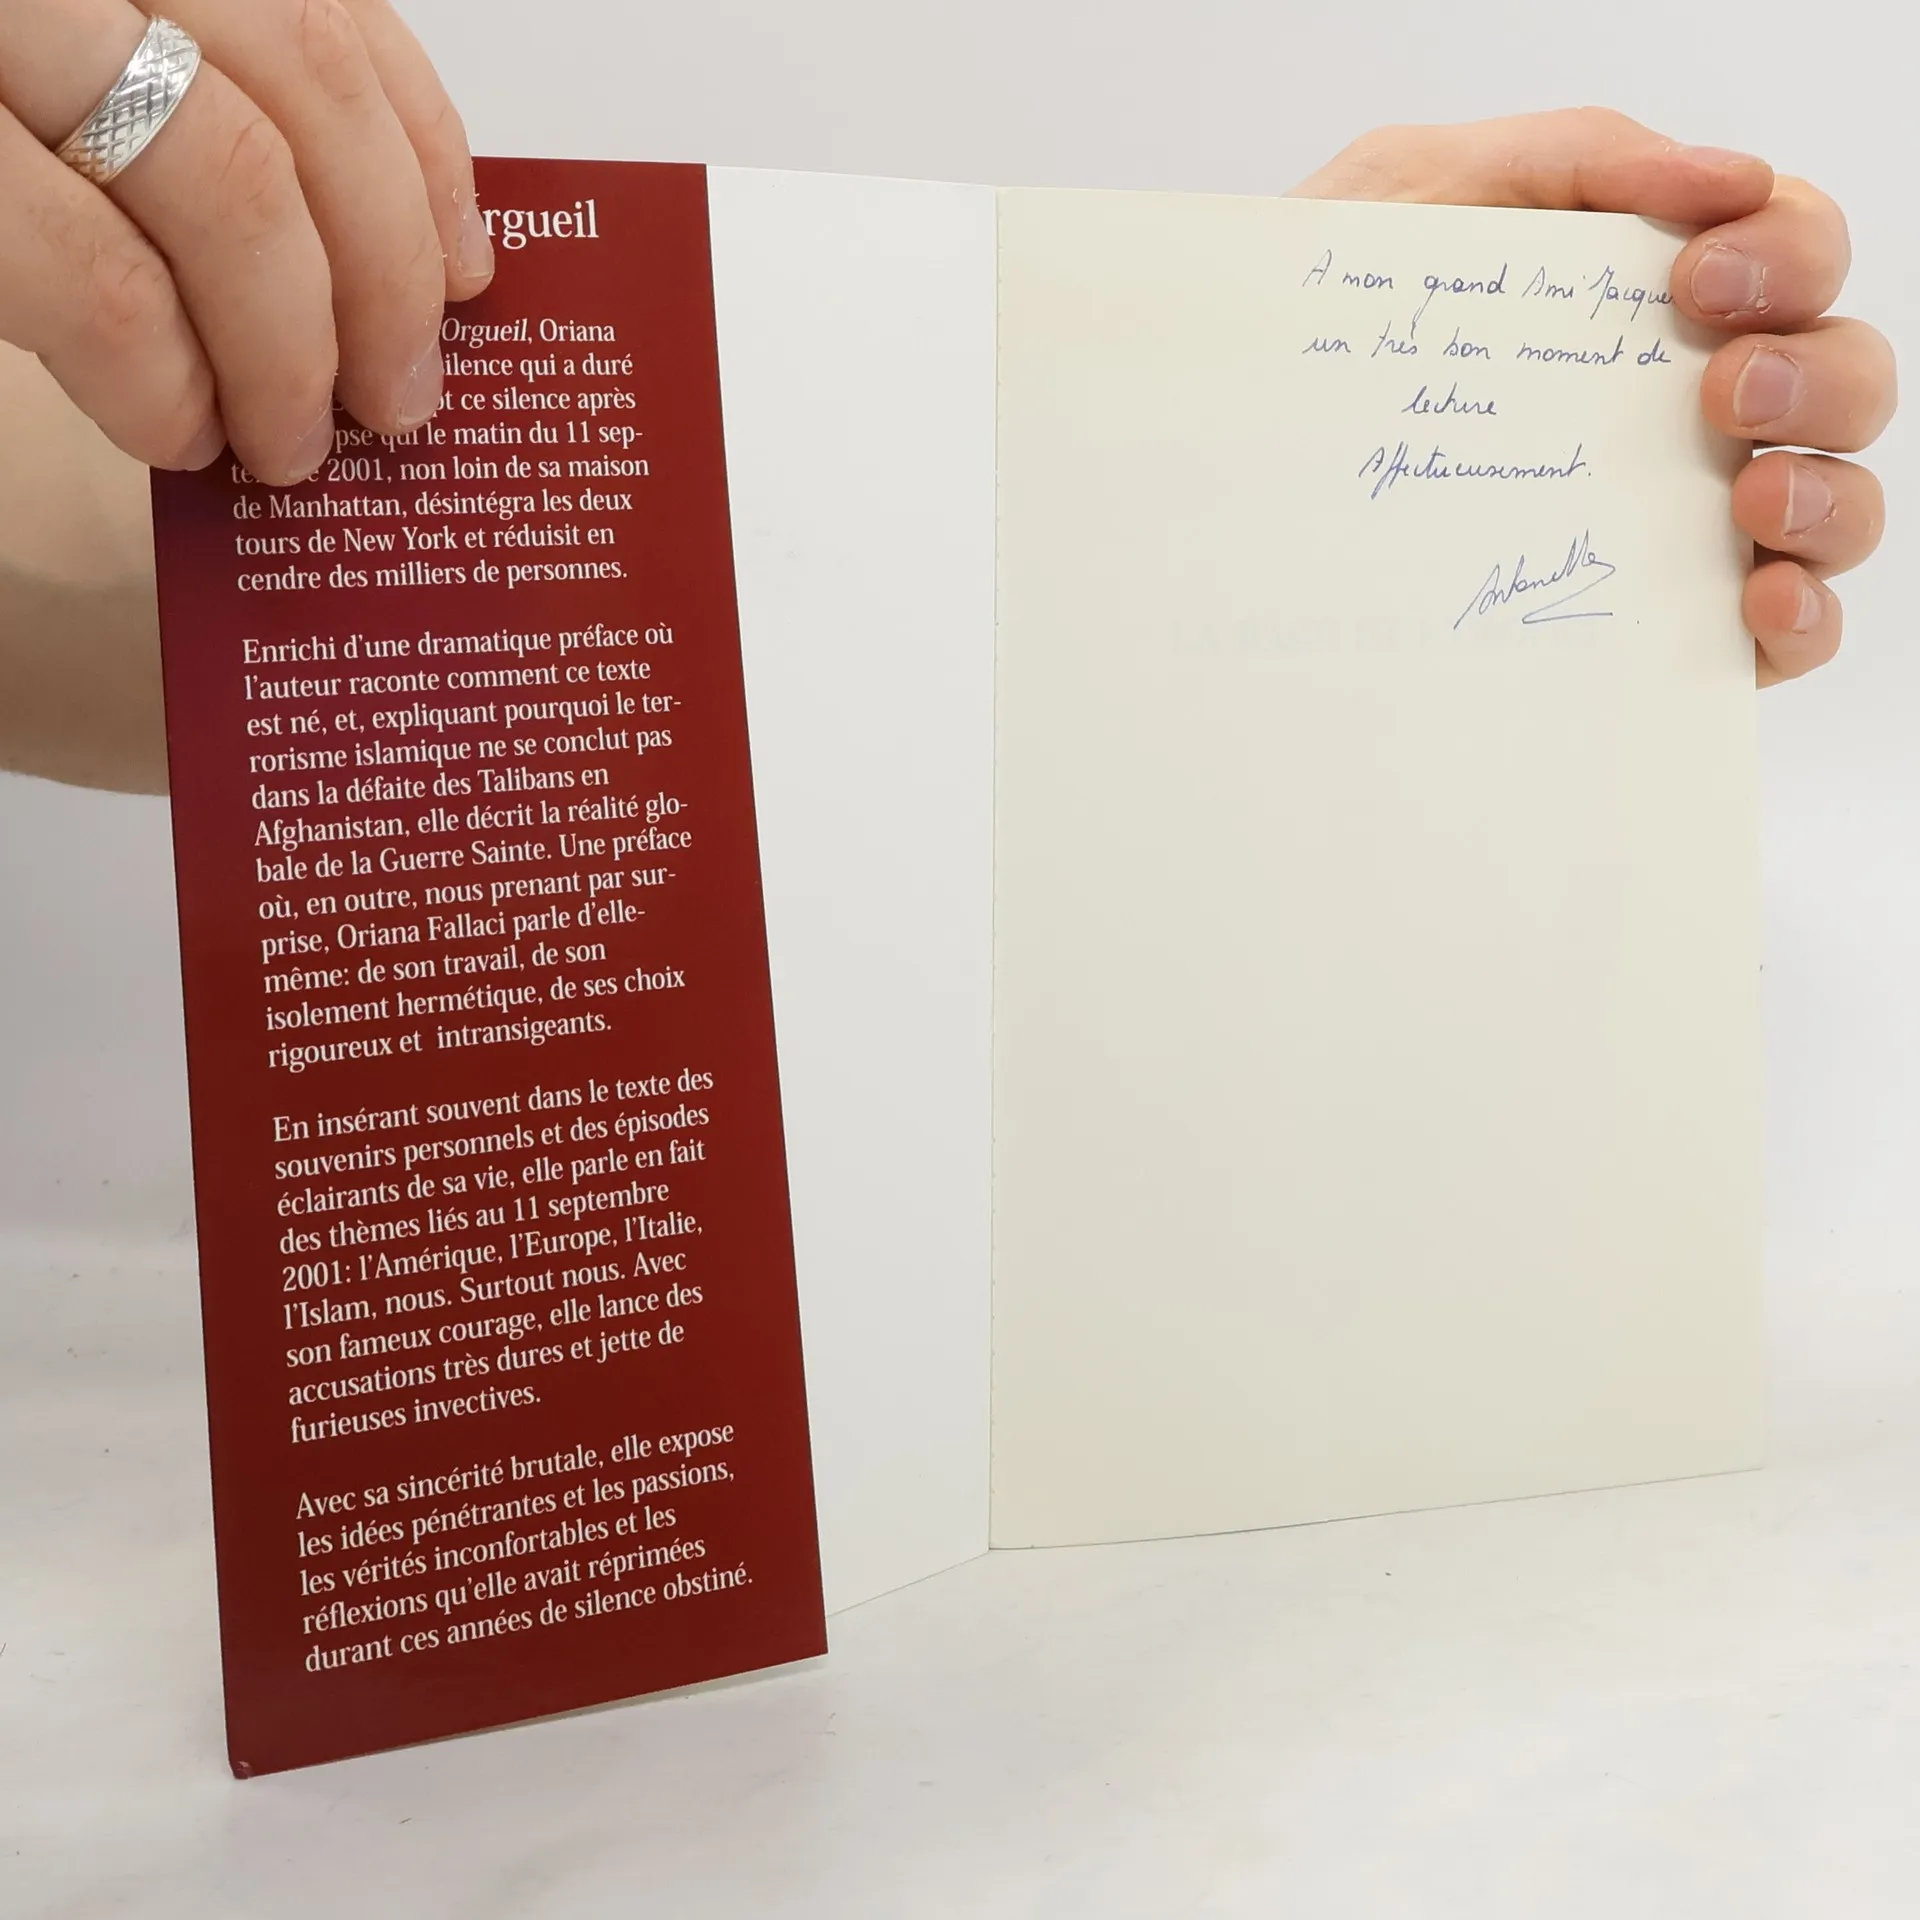 rgueil
Orgueil, Oriana
ilence qui a duré
pt ce silence après
pse qui le matin du 11 sep-
2001, non loin de sa maison
de Manhattan, désintégra les deux
tours de New York et réduisit en
cendre des milliers de personnes.
Enrichi d'une dramatique préface où
l'auteur raconte comment ce texte
est né, et, expliquant pourquoi le ter-
rorisme islamique ne se conclut pas
dans la défaite des Talibans en
Afghanistan, elle décrit la réalité glo-
bale de la Guerre Sainte. Une préface
où, en outre, nous prenant par sur-
prise, Oriana Fallaci parle d'elle-
même: de son travail, de son
isolement hermétique, de ses choix
rigoureux et intransigeants.
En insérant souvent dans le texte des
souvenirs personnels et des épisodes
éclairants de sa vie, elle parle en fait
des thèmes liés au 11 septembre
2001: l'Amérique, l'Europe, l'Italie,
l'Islam, nous. Surtout nous. Avec
son fameux courage, elle lance des
accusations très dures et jette de
furieuses invectives.
Avec sa sincérité brutale, elle expose
les idées pénétrantes et les passions,
les vérités inconfortables et les
réflexions qu'elle avait réprimées
durant ces années de silence obstiné.
A mon grand Ami Jacques
un très bon moment de
lecture
Affectueusement.
Antonella